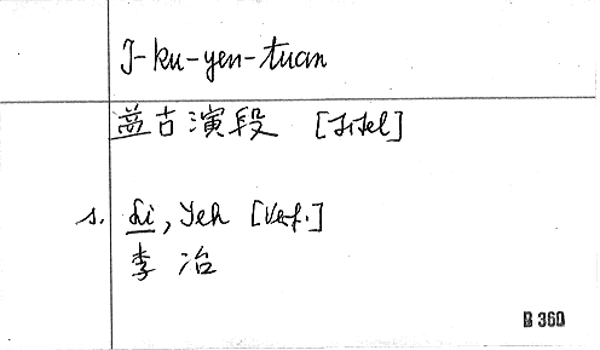 I-ku-yen-tuan
益古演段 [Titel]
s. Li, Yeh [Verf.]
李 冶
B 360